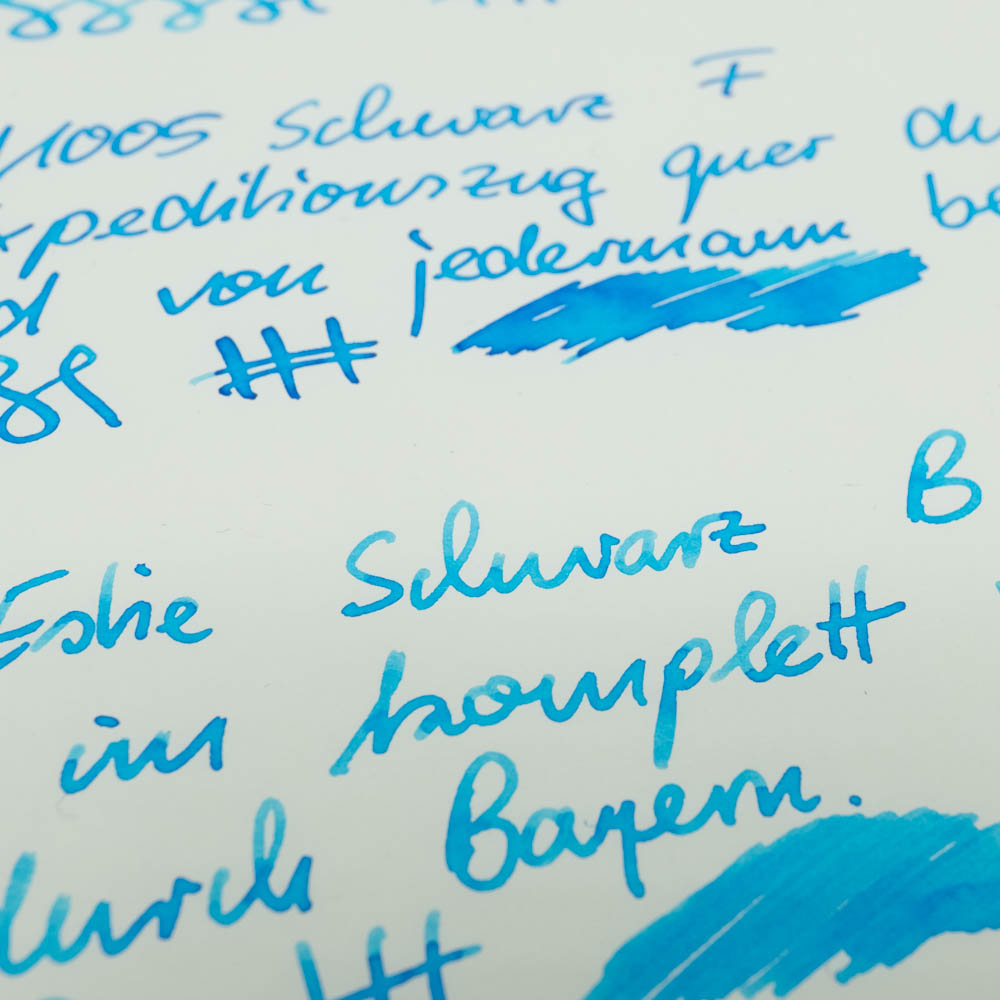 Schwarz F
Expeditionszug quer du
von jedermann be
Estie Schwarz B
im komplett
durch Bayern.